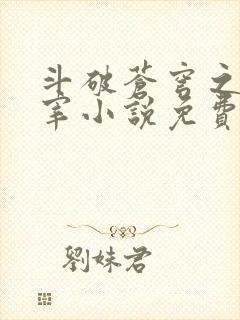 斗破蒼穹之
宰小說免費
劉妹君